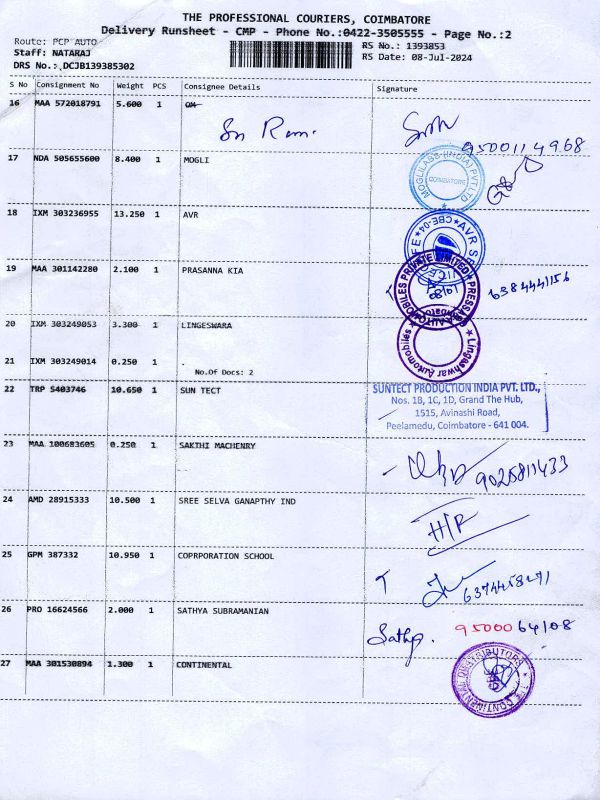 THE PROFESSIONAL COURIERS, COIMBATORE
Delivery Runsheet - CMP - Phone No.:0422-3505555 - Page No.:2
Route: PCP AUTO
Staff: NATARAJ
DRS No.: DCJB139385302
RS No.: 1393853
RS Date: 08-Jul-2024
S No Consignment No Weight PCS Consignee Details Signature
16 MAA 572018791 5.600 1 OM
Sri Ram. 9500114968
17 NDA 505655600 8.400 1 MOGLI
MOGLILABS (INDIA) PVT LTD
COIMBATORE
18 IXM 303236955 13.250 1 AVR
AVR CBE-04
19 MAA 301142280 2.100 1 PRASANNA KIA
AUTOMOBILES PRIVATE LIMITED
6384441156
20 IXM 303249053 3.300 1 LINGESWARA
Lingeshwar Automobiles
21 IXM 303249014 0.250 1
No.Of Docs: 2
22 TRP 5403746 10.650 1 SUN TECT
SUNTECT PRODUCTION INDIA PVT. LTD.,
Nos. 1B, 1C, 1D, Grand The Hub,
1515, Avinashi Road,
Peelamedu, Coimbatore - 641 004.
23 MAA 100683605 0.250 1 SAKTHI MACHENRY
9025811433
24 AMD 28915333 10.500 1 SREE SELVA GANAPTHY IND
25 GPM 387332 10.950 1 COPRPORATION SCHOOL
26 PRO 16624566 2.000 1 SATHYA SUBRAMANIAN
Sathya. 9500064108
27 MAA 301530894 1.300 1 CONTINENTAL
THE CONTINENTAL DISTRIBUTORS